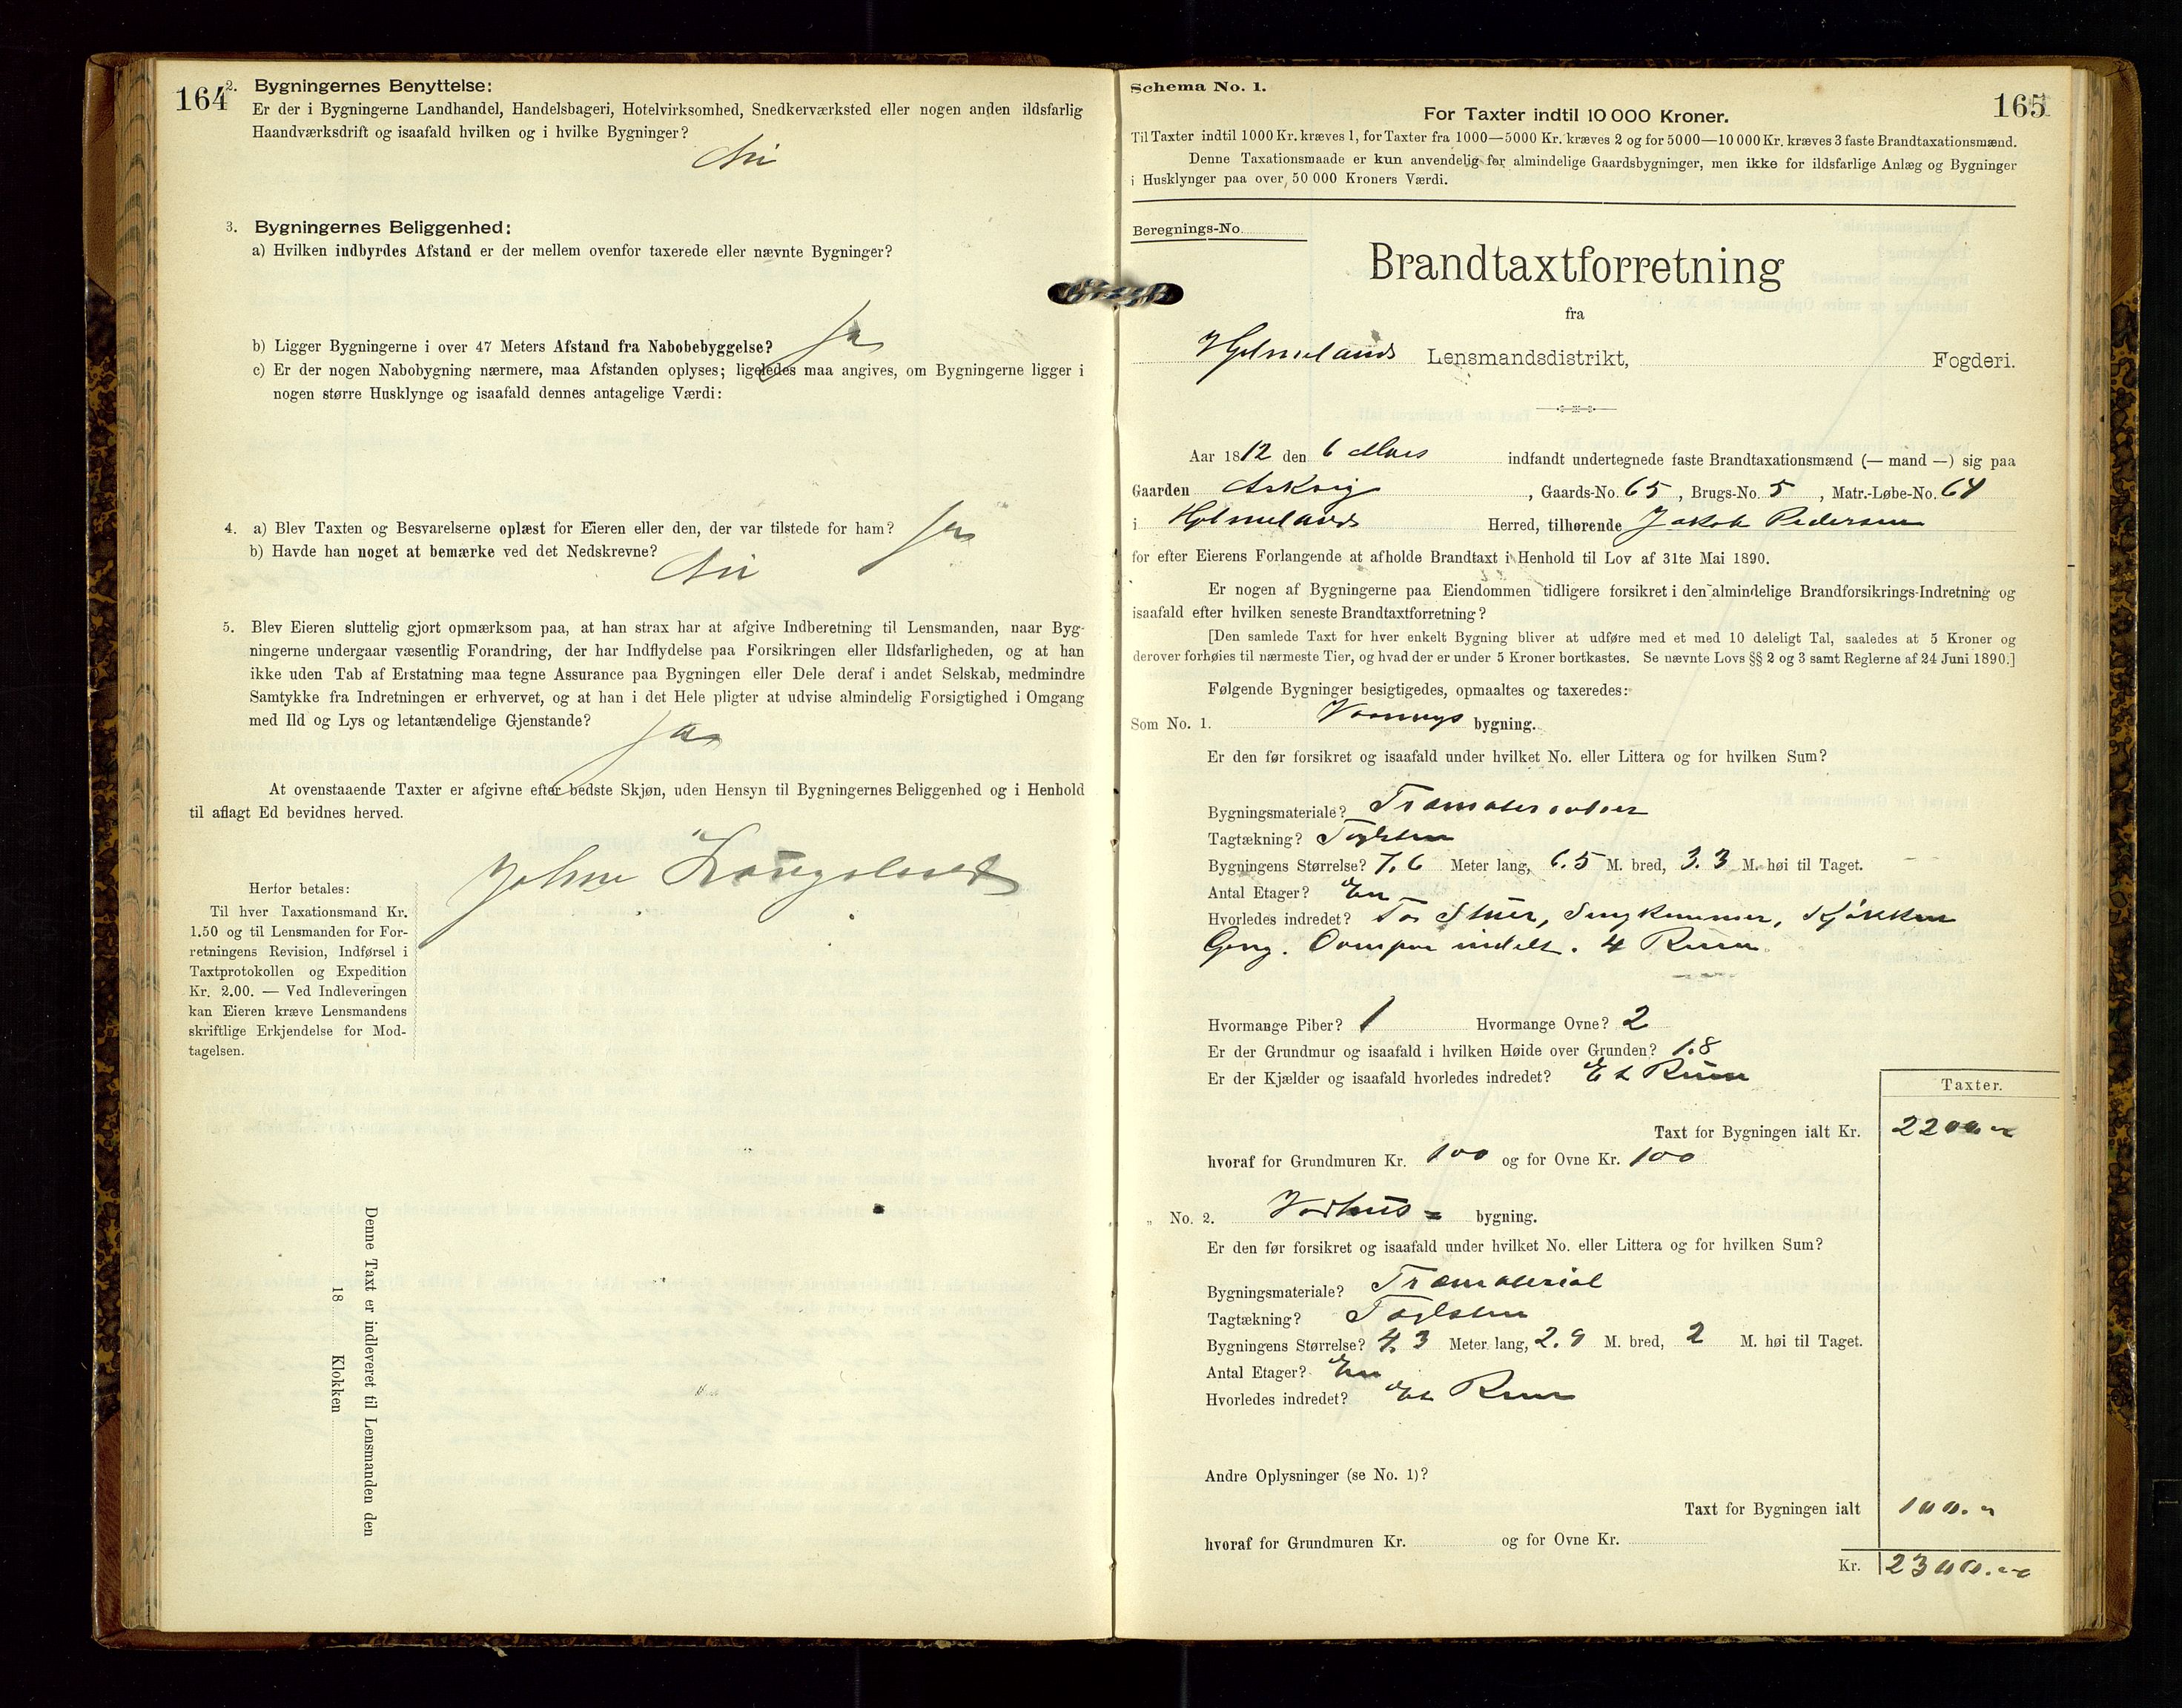 164
2. Bygningernes Benyttelse:
Er der i Bygningerne Landhandel, Handelsbageri, Hotelvirksomhed, Snedkerværksted eller nogen anden ildsfarlig
Haandværksdrift og isaafald hvilken og i hvilke Bygninger?
Nei
3. Bygningernes Beliggenhed:
a) Hvilken indbyrdes Afstand er der mellem ovenfor taxerede eller nævnte Bygninger?
b) Ligger Bygningerne i over 47 Meters Afstand fra Nabobebyggelse? Ja
c) Er der nogen Nabobygning nærmere, maa Afstanden oplyses; ligeledes maa angives, om Bygningerne ligger i
nogen større Husklynge og isaafald dennes antagelige Værdi:
4. a) Blev Taxten og Besvarelserne oplæst for Eieren eller den, der var tilstede for ham? Ja
b) Havde han noget at bemærke ved det Nedskrevne? Nei
5. Blev Eieren sluttelig gjort opmærksom paa, at han strax har at afgive Indberetning til Lensmanden, naar Byg-
ningerne undergaar væsentlig Forandring, der har Indflydelse paa Forsikringen eller Ildsfarligheden, og at han
ikke uden Tab af Erstatning maa tegne Assurance paa Bygningen eller Dele deraf i andet Selskab, medmindre
Samtykke fra Indretningen er erhvervet, og at han i det Hele pligter at udvise almindelig Forsigtighed i Omgang
med Ild og Lys og letantændelige Gjenstande? Ja
At ovenstaaende Taxter er afgivne efter bedste Skjøn, uden Hensyn til Bygningernes Beliggenhed og i Henhold
til aflagt Ed bevidnes herved.
Herfor betales:
Til hver Taxationsmand Kr.
1.50 og til Lensmanden for For-
retningens Revision, Indførsel i
Taxtprotokollen og Expedition
Kr. 2.00. — Ved Indleveringen
kan Eieren kræve Lensmandens
skriftlige Erkjendelse for Mod-
tagelsen.
Denne Taxt er indleveret til Lensmanden den
18 Klokken
165
Schema No. 1.
For Taxter indtil 10 000 Kroner.
Til Taxter indtil 1000 Kr. kræves 1, for Taxter fra 1000—5000 Kr. kræves 2 og for 5000—10 000 Kr. kræves 3 faste Brandtaxationsmænd.
Denne Taxationsmaade er kun anvendelig for almindelige Gaardsbygninger, men ikke for ildsfarlige Anlæg og Bygninger
i Husklynger paa over 50 000 Kroners Værdi.
Beregnings-No.
Brandtaxtforretning
fra
Hjelmelands Lensmandsdistrikt, Fogderi.
Aar 1812 den 6 Mars indfandt undertegnede faste Brandtaxationsmænd (— mand —) sig paa
Gaarden Askvig, Gaards-No. 65, Brugs-No. 5, Matr.-Løbe-No. 64
i Hjelmelands Herred, tilhørende Jakob Pedersen
for efter Eierens Forlangende at afholde Brandtaxt i Henhold til Lov af 31te Mai 1890.
Er nogen af Bygningerne paa Eiendommen tidligere forsikret i den almindelige Brandforsikrings-Indretning og
isaafald efter hvilken seneste Brandtaxtforretning?
[Den samlede Taxt for hver enkelt Bygning bliver at udføre med et med 10 deleligt Tal, saaledes at 5 Kroner og
derover forhøies til nærmeste Tier, og hvad der er under 5 Kroner bortkastes. Se nævnte Lovs §§ 2 og 3 samt Reglerne af 24 Juni 1890.]
Følgende Bygninger besigtigedes, opmaaltes og taxeredes:
Som No. 1. Vaanings bygning.
Er den før forsikret og isaafald under hvilket No. eller Littera og for hvilken Sum?
Bygningsmateriale?
Tagtækning? Taglsten
Bygningens Størrelse? 7.6 Meter lang, 6.5 M. bred, 3.3 M. høi til Taget.
Antal Etager? En
Hvorledes indredet? To Stuer, Sengkammer, Kjøkken
Gang. Ovenpaa indelt. 4 Rum
Hvormange Piber? 1 Hvormange Ovne? 2
Er der Grundmur og isaafald i hvilken Høide over Grunden? 1.8
Er der Kjælder og isaafald hvorledes indredet? Et Rum
Taxter.
Taxt for Bygningen ialt Kr. 2200.
hvoraf for Grundmuren Kr. 100 og for Ovne Kr. 100
„ No. 2. Vedhus = bygning.
Er den før forsikret og isaafald under hvilket No. eller Littera og for hvilken Sum?
Bygningsmateriale? Træmaterial
Tagtækning? Taglsten
Bygningens Størrelse? 4.3 Meter lang, 2.9 M. bred, 2 M. høi til Taget.
Antal Etager? En
Hvorledes indredet? Et Rum
Andre Oplysninger (se No. 1)?
Taxt for Bygningen ialt 100.
hvoraf for Grundmuren Kr. og for Ovne Kr.
Kr. 2300.00